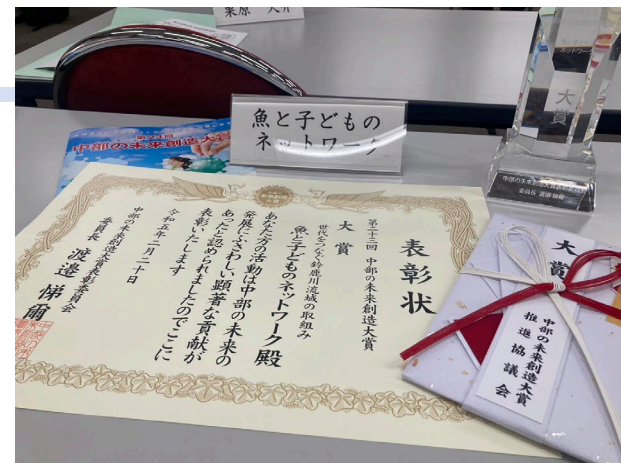 魚と子どもの
ネットワーク
中部の未来創造大賞
表彰状
第二十三回 中部の未来創造大賞
大賞
世代をつなぐ鈴鹿川流域の取組み
魚と子どものネットワーク殿
あなた方の活動は中部の未来の
発展にふさわしい顕著な貢献が
あったと認められましたのでここに
表彰いたします
令和五年二月二十日
中部の未来創造大賞表彰委員会
委員長 渡邉悌爾
大賞
大賞
中部の未来創造大賞
推進協議会